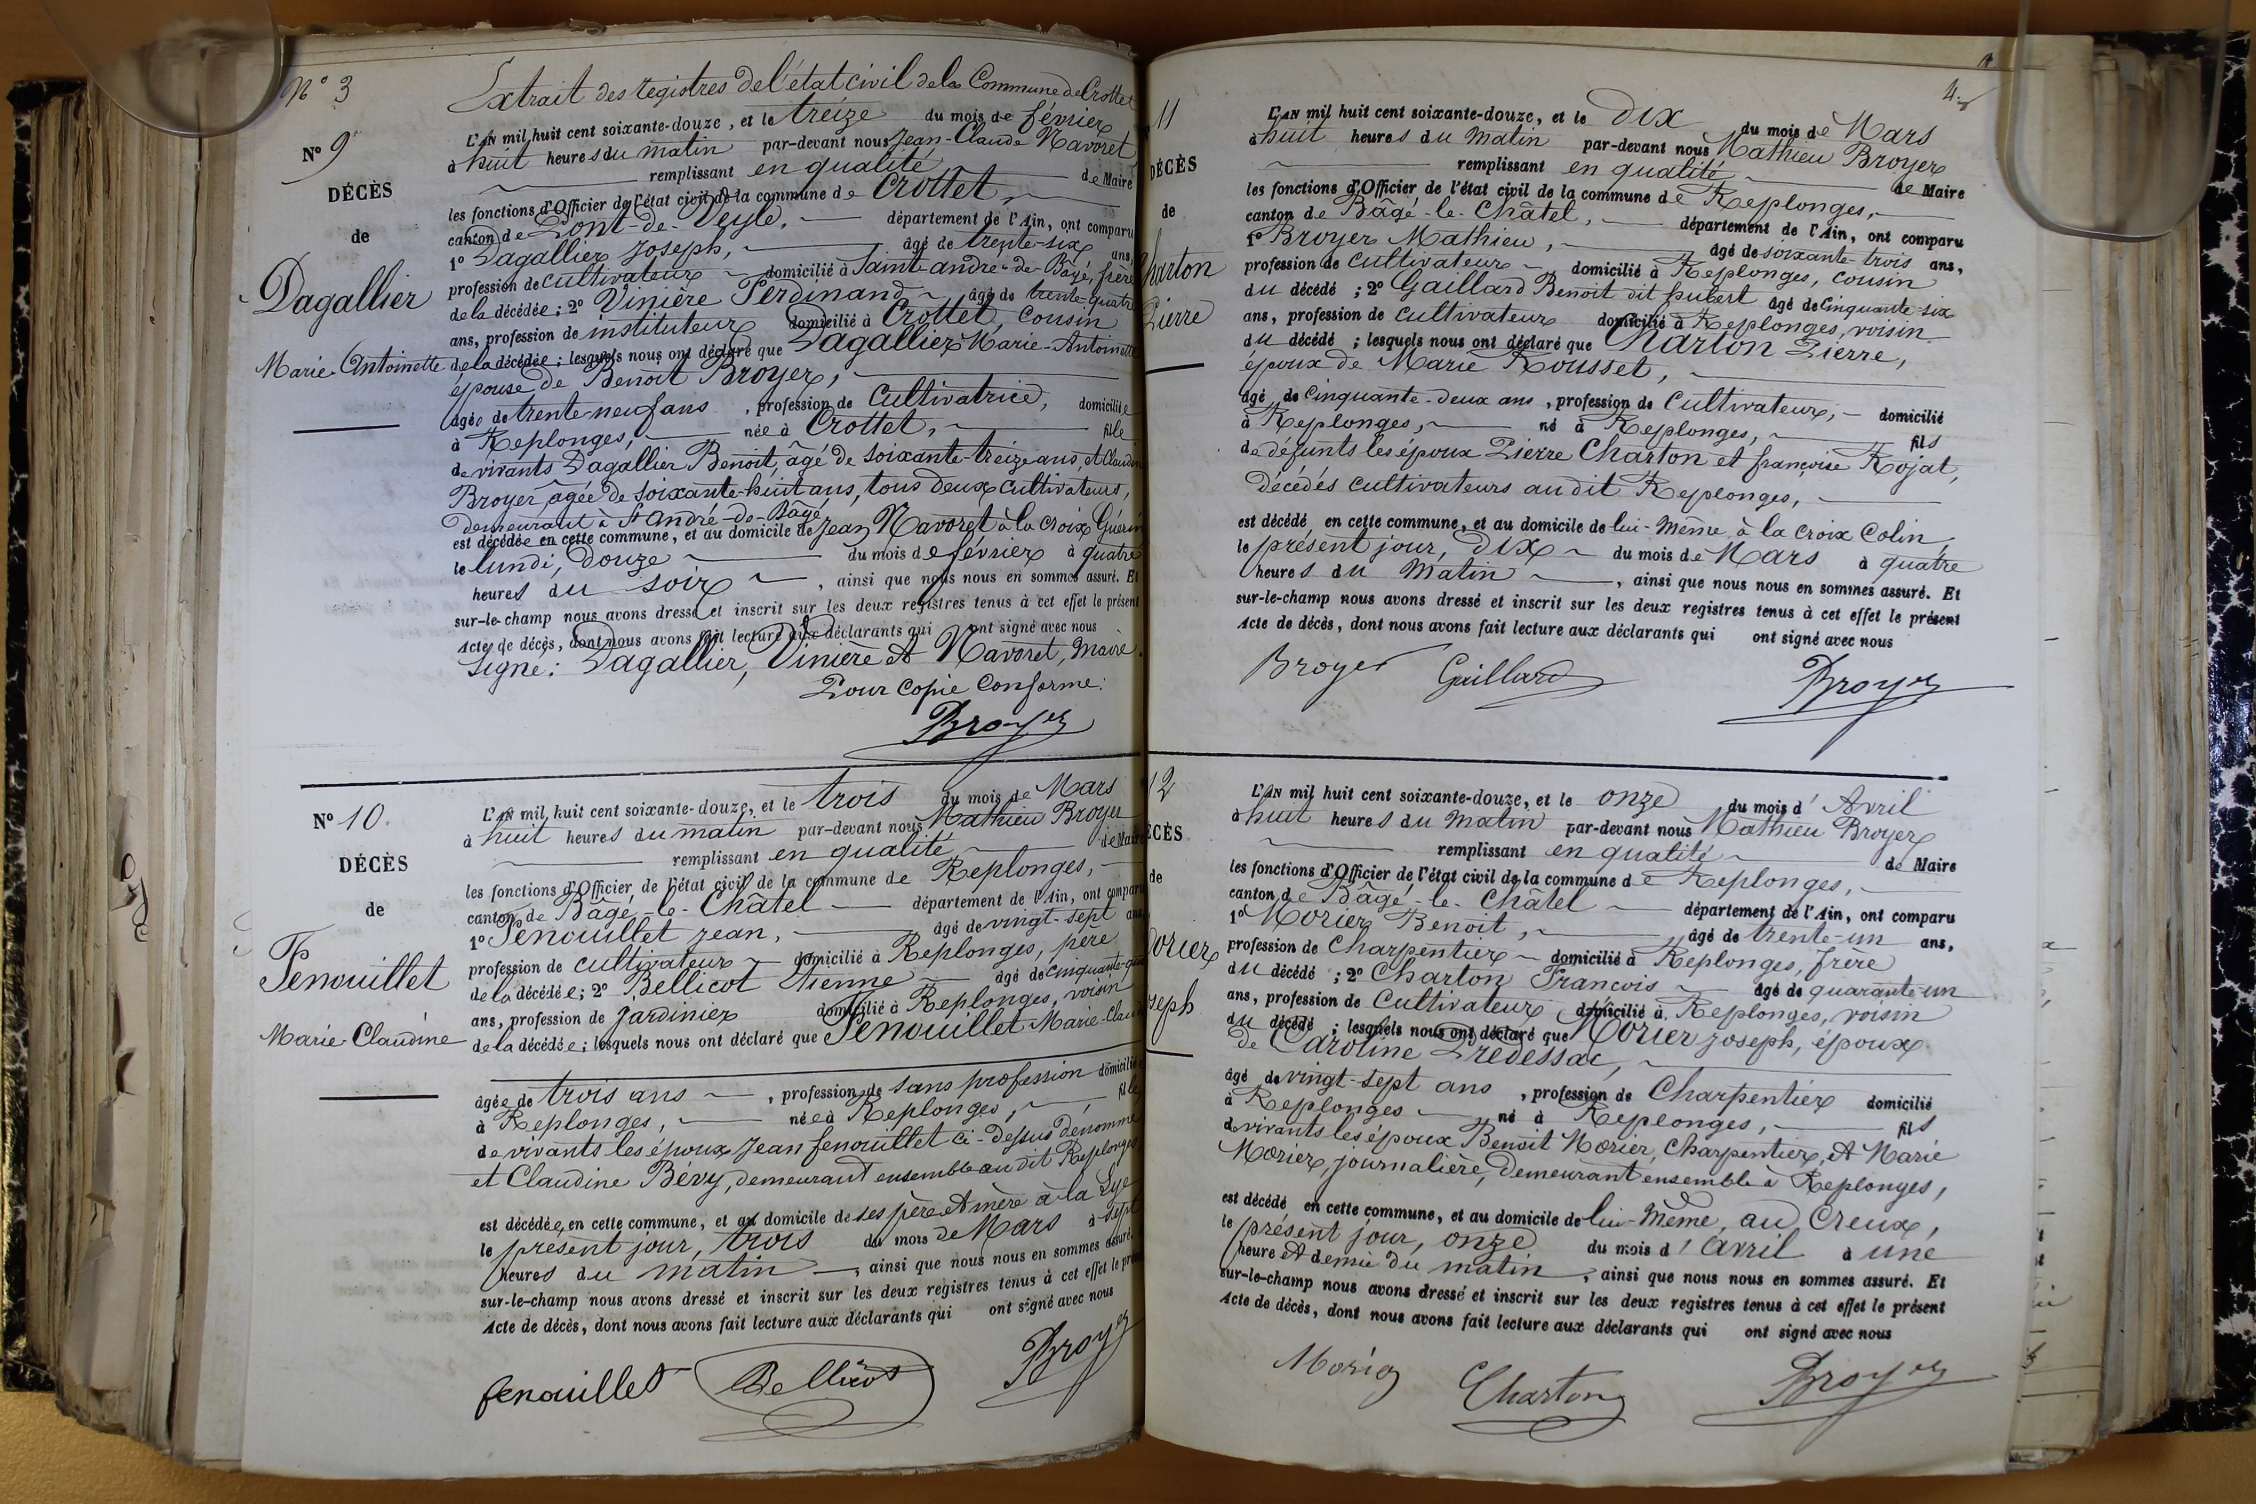 N° 3
Extrait des registres de l'état civil de la Commune de Crottet
N° 9
DÉCÈS
de
Dagallier
Marie Antoinette
L'AN mil huit cent soixante-douze, et le treize du mois de février
à huit heures du matin par-devant nous Jean-Claude Navoret
remplissant en qualité de Maire
les fonctions d'Officier de l'état civil de la commune de Crottet,
canton de Pont-de-Veyle, département de l'Ain, ont comparu
1° Dagallier Joseph, âgé de trente-six ans,
profession de cultivateur domicilié à Saint andré-de-Bagé, frère
de la décédée ; 2° Vinière Ferdinand âgé de trente-quatre
ans, profession de instituteur domicilié à Crottet, cousin
de la décédée ; lesquels nous ont déclaré que Dagallier Marie-Antoinette
épouse de Benoît Broyer,
âgée de trente-neuf ans, profession de Cultivatrice, domiciliée
à Replonges, née à Crottet, fille
de vivants Dagallier Benoît, âgé de soixante-treize ans, et Claudine
Broyer âgée de soixante-huit ans, tous deux cultivateurs,
demeurant à St André-de-Bagé
est décédée en cette commune, et au domicile de Jean Navoret à la Croix Guérin
le lundi, douze du mois de février à quatre
heures du soir, ainsi que nous nous en sommes assuré. Et
sur-le-champ nous avons dressé et inscrit sur les deux registres tenus à cet effet le présent
Acte de décès, dont nous avons fait lecture aux déclarants qui ont signé avec nous
Signé : Dagallier, Vinière et Navoret, Maire.
Pour Copie Conforme :
Broyer
N° 10.
DÉCÈS
de
Fenouillet
Marie Claudine
L'AN mil huit cent soixante-douze, et le trois du mois de Mars
à huit heures du matin par-devant nous Mathieu Broyer
remplissant en qualité de Maire
les fonctions d'Officier de l'état civil de la commune de Replonges,
canton de Bâgé-le-Châtel département de l'Ain, ont comparu
1° Fenouillet Jean, âgé de vingt-sept ans
profession de cultivateur domicilié à Replonges, père
de la décédée ; 2° Bellicot Etienne âgé de cinquante-
ans, profession de jardinier domicilié à Replonges, voisin
de la décédée ; lesquels nous ont déclaré que Fenouillet Marie-Claudine
âgée de trois ans, profession de sans profession domiciliée
à Replonges, née à Replonges, fille
de vivants les époux Jean fenouillet ci-dessus dénommé
et Claudine Bévy, demeurant ensemble au dit Replonges
est décédée, en cette commune, et au domicile de ses père et mère à la Lye
le présent jour, trois du mois de Mars à sept
heures du matin, ainsi que nous nous en sommes assuré.
sur-le-champ nous avons dressé et inscrit sur les deux registres tenus à cet effet le présent
Acte de décès, dont nous avons fait lecture aux déclarants qui ont signé avec nous
fenouillet Bellicot Broyer
4
11
DÉCÈS
de
Charton
Pierre
L'AN mil huit cent soixante-douze, et le dix du mois de Mars
à huit heures du matin par-devant nous Mathieu Broyer
remplissant en qualité de Maire
les fonctions d'Officier de l'état civil de la commune de Replonges,
canton de Bâgé-le-Châtel, département de l'Ain, ont comparu
1° Broyer Mathieu, âgé de soixante-trois ans,
profession de cultivateur domicilié à Replonges, cousin
du décédé ; 2° Gaillard Benoît dit hubert âgé de Cinquante-six
ans, profession de cultivateur domicilié à Replonges, voisin
du décédé ; lesquels nous ont déclaré que Charton Pierre,
époux de Marie Rousset,
âgé de Cinquante-deux ans, profession de Cultivateur, domicilié
à Replonges, né à Replonges, fils
de défunts les époux Pierre Charton et françoise Rojat,
décédés cultivateurs au dit Replonges,
est décédé en cette commune, et au domicile de lui-même à la Croix Colin,
le présent jour, dix du mois de Mars à quatre
heures du Matin, ainsi que nous nous en sommes assuré. Et
sur-le-champ nous avons dressé et inscrit sur les deux registres tenus à cet effet le présent
Acte de décès, dont nous avons fait lecture aux déclarants qui ont signé avec nous
Broyer Gaillard Broyer
12
ÉCÈS
de
Morier
oseph
L'AN mil huit cent soixante-douze, et le onze du mois d'Avril
à huit heures du Matin par-devant nous Mathieu Broyer
remplissant en qualité de Maire
les fonctions d'Officier de l'état civil de la commune de Replonges,
canton de Bâgé-le-Châtel département de l'Ain, ont comparu
1° Morier Benoît, âgé de trente-un ans,
profession de Charpentier domicilié à Replonges, frère
du décédé ; 2° Charton François âgé de quarante-un
ans, profession de Cultivateur domicilié à Replonges, voisin
du décédé ; lesquels nous ont déclaré que Morier Joseph, époux
de Caroline Predessac,
âgé de vingt-sept ans, profession de Charpentier domicilié
à Replonges né à Replonges, fils
de vivants les époux Benoît Morier, Charpentier, et Marie
Morier, journalière, demeurant ensemble à Replonges,
est décédé en cette commune, et au domicile de lui-même, au Creux,
le présent jour, onze du mois d'Avril à une
heure et demie du matin, ainsi que nous nous en sommes assuré. Et
sur-le-champ nous avons dressé et inscrit sur les deux registres tenus à cet effet le présent
Acte de décès, dont nous avons fait lecture aux déclarants qui ont signé avec nous
Morier Charton Broyer